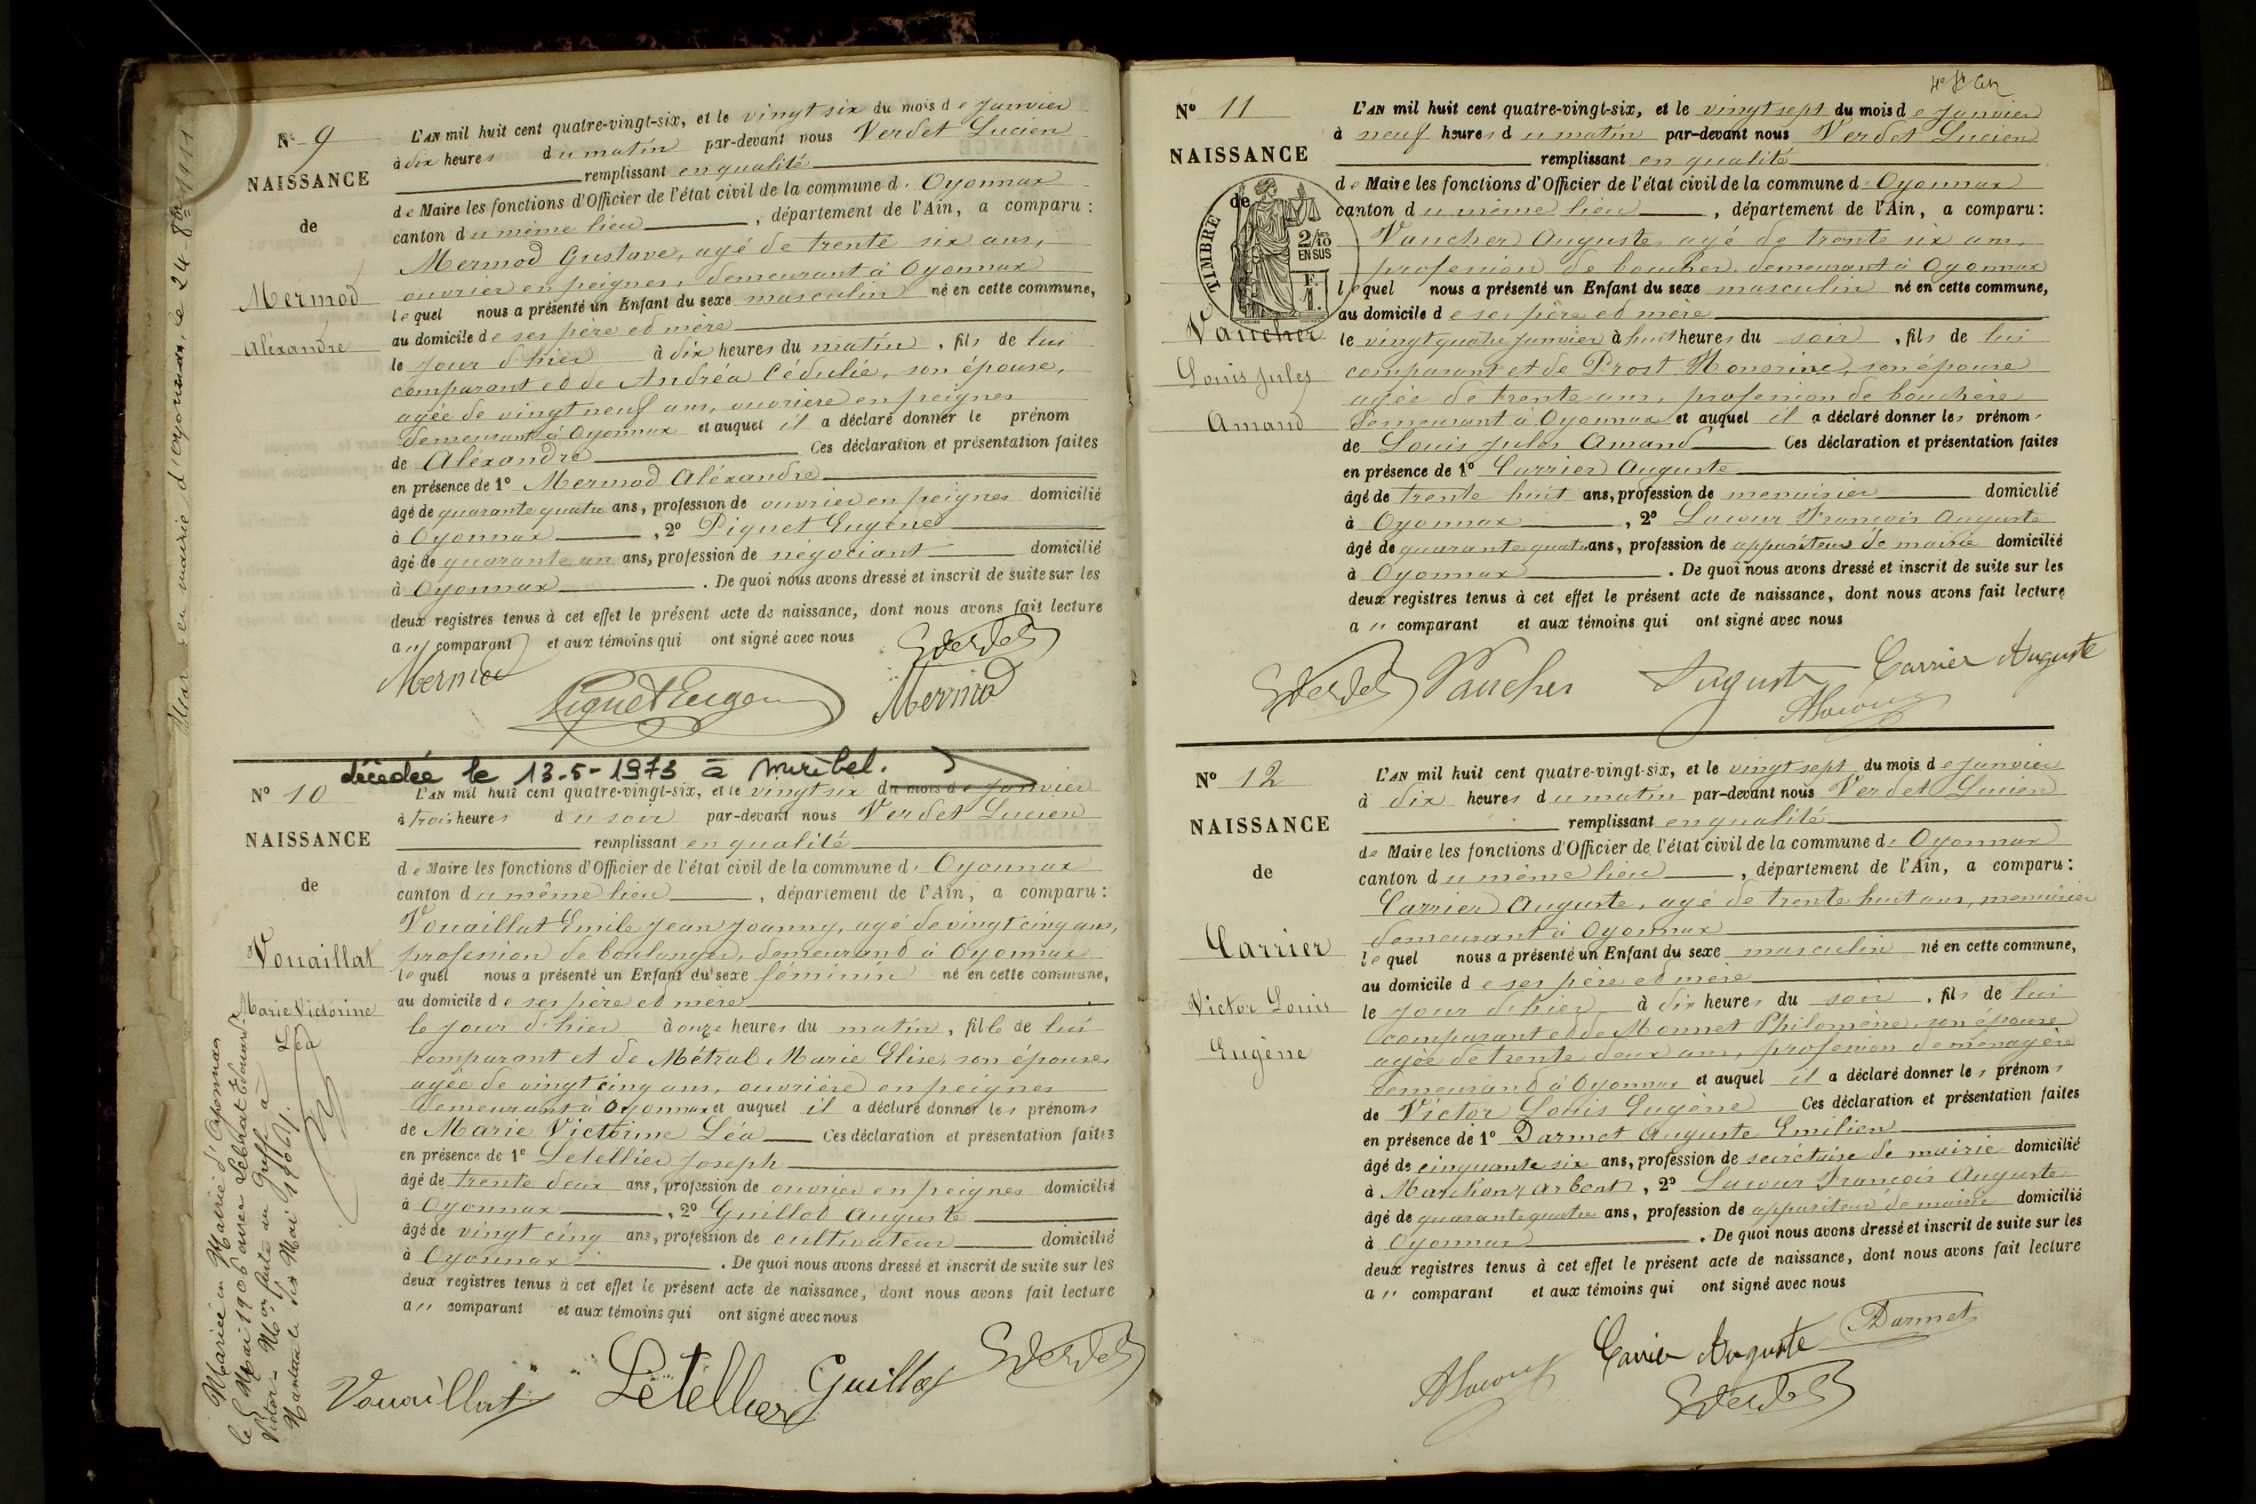 Nº 9
NAISSANCE
de
Mermod
Aléxandre
L'AN mil huit cent quatre-vingt-six, et le vingt six du mois de Janvier
à dix heures du matin par-devant nous Verdet Lucien
remplissant en qualité
de Maire les fonctions d'Officier de l'état civil de la commune d' Oyonnax
canton du même lieu, département de l'Ain, a comparu :
Mermod Gustave, agé de trente six ans,
ouvrier en peignes, demeurant à Oyonnax
lequel nous a présenté un Enfant du sexe masculin né en cette commune,
au domicile de ses père et mère
le jour d'hier à dix heures du matin, fils de lui
comparant et de Andréa Cédulie, son épouse,
agée de vingt neuf ans, ouvrière en peignes
demeurant à Oyonnax et auquel il a déclaré donner le prénom
de Aléxandre Ces déclaration et présentation faites
en présence de 1º Mermod Aléxandre
âgé de quarante quatre ans, profession de ouvrier en peignes domicilié
à Oyonnax, 2º Piquet Eugène
âgé de quarante un ans, profession de négociant domicilié
à Oyonnax. De quoi nous avons dressé et inscrit de suite sur les
deux registres tenus à cet effet le présent acte de naissance, dont nous avons fait lecture
au comparant et aux témoins qui ont signé avec nous
Mermod Piquet Eugène Mermod
décédée le 13-5-1973 à Miribel.
Nº 10
NAISSANCE
de
Vouaillat
Marie Victorine
Léa
L'AN mil huit cent quatre-vingt-six, et le vingt six du mois de Janvier
à trois heures du soir par-devant nous Verdet Lucien
remplissant en qualité
de Maire les fonctions d'Officier de l'état civil de la commune d' Oyonnax
canton du même lieu, département de l'Ain, a comparu :
Vouaillat Emile Jean Joanny, agé de vingt cinq ans,
profession de boulanger, demeurant à Oyonnax
lequel nous a présenté un Enfant du sexe féminin né en cette commune,
au domicile de ses père et mère
le jour d'hier à onze heures du matin, fille de lui
comparant et de Métral Marie Elise, son épouse,
agée de vingt cinq ans, ouvrière en peignes
demeurant à Oyonnax et auquel il a déclaré donner les prénoms
de Marie Victorine Léa Ces déclaration et présentation faites
en présence de 1º Letellier Joseph
âgé de trente deux ans, profession de ouvrier en peignes domicilié
à Oyonnax, 2º Guillot Auguste
âgé de vingt cinq ans, profession de cultivateur domicilié
à Oyonnax. De quoi nous avons dressé et inscrit de suite sur les
deux registres tenus à cet effet le présent acte de naissance, dont nous avons fait lecture
au comparant et aux témoins qui ont signé avec nous
Vouaillat Letellier Guillot
Mariée en Mairie d'Oyonnax
le 5 Mai 1906 avec
Nantua le dix Mai 1906.
en mairie d'Oyonnax, le 24 8bre 1911
Nº 11
NAISSANCE
de
TIMBRE
2/10 EN SUS
Vaucher
Louis Jules
Amand
L'AN mil huit cent quatre-vingt-six, et le vingt sept du mois de Janvier
à neuf heures du matin par-devant nous Verdet Lucien
remplissant en qualité
de Maire les fonctions d'Officier de l'état civil de la commune d' Oyonnax
canton du même lieu, département de l'Ain, a comparu :
Vaucher Auguste, agé de trente six ans,
profession de boucher, demeurant à Oyonnax
lequel nous a présenté un Enfant du sexe masculin né en cette commune,
au domicile de ses père et mère
le vingt quatre Janvier à huit heures du soir, fils de lui
comparant et de Prost Honorine, son épouse
agée de trente ans, profession de bouchère
demeurant à Oyonnax et auquel il a déclaré donner les prénoms
de Louis Jules Amand Ces déclaration et présentation faites
en présence de 1º Carrier Auguste
âgé de trente huit ans, profession de menuisier domicilié
à Oyonnax, 2º Lacour François Auguste
âgé de quarante quatre ans, profession de appariteur de mairie domicilié
à Oyonnax. De quoi nous avons dressé et inscrit de suite sur les
deux registres tenus à cet effet le présent acte de naissance, dont nous avons fait lecture
au comparant et aux témoins qui ont signé avec nous
Vaucher Auguste Carrier Auguste
Nº 12
NAISSANCE
de
Carrier
Victor Louis
Eugène
L'AN mil huit cent quatre-vingt-six, et le vingt sept du mois de Janvier
à dix heures du matin par-devant nous Verdet Lucien
remplissant en qualité
de Maire les fonctions d'Officier de l'état civil de la commune d' Oyonnax
canton du même lieu, département de l'Ain, a comparu :
Carrier Auguste, agé de trente huit ans, menuisier
demeurant à Oyonnax
lequel nous a présenté un Enfant du sexe masculin né en cette commune,
au domicile de ses père et mère
le jour d'hier à dix heures du soir, fils de lui
comparant et de Monnet Philomène, son épouse
agée de trente deux ans, profession de ménagère
demeurant à Oyonnax et auquel il a déclaré donner les prénoms
de Victor Louis Eugène Ces déclaration et présentation faites
en présence de 1º Darmet Auguste Emilien
âgé de cinquante six ans, profession de secrétaire de mairie domicilié
à Marchon, Arbent, 2º Lacour François Auguste
âgé de quarante quatre ans, profession de appariteur de mairie domicilié
à Oyonnax. De quoi nous avons dressé et inscrit de suite sur les
deux registres tenus à cet effet le présent acte de naissance, dont nous avons fait lecture
au comparant et aux témoins qui ont signé avec nous
Carrier Auguste Darmet